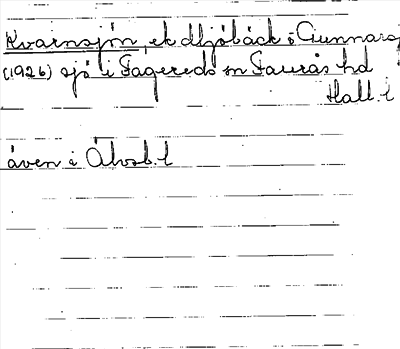 Kvarnsjön, ek dljöbäck o Gunnarsj
(1926) sjö i Fagereds sn Faurås hd
Hall. l
även i Älvsb. l